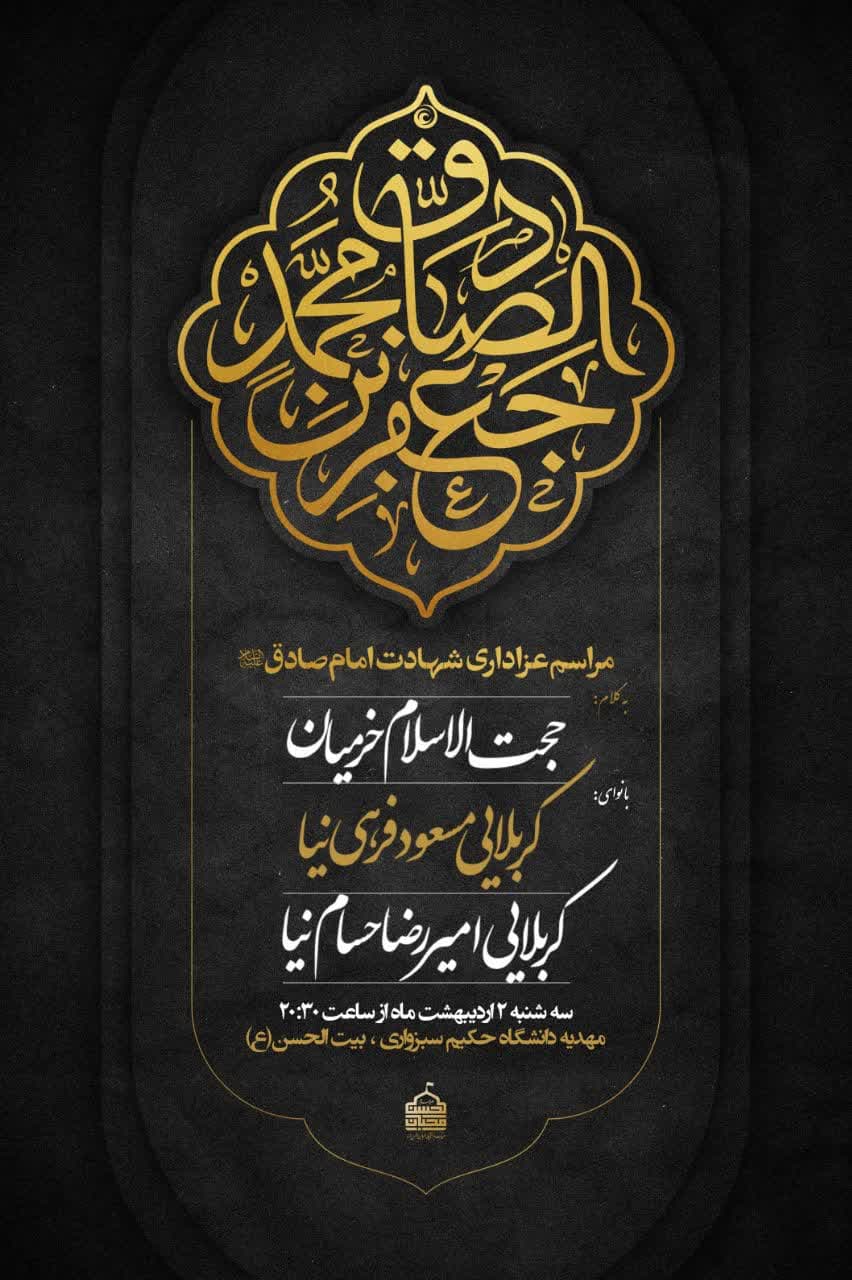 جعفر بن محمد الصادق
مراسم عزاداری شهادت امام صادق علیه‌السلام
به کلام:
حجت الاسلام خرمیان
بانوای:
کربلایی مسعود فرهی نیا
کربلایی امیررضا حسام نیا
سه شنبه ۲ اردیبهشت ماه از ساعت ۲۰:۳۰
مهدیه دانشگاه حکیم سبزواری ، بیت الحسن(ع)
محبان الحسن